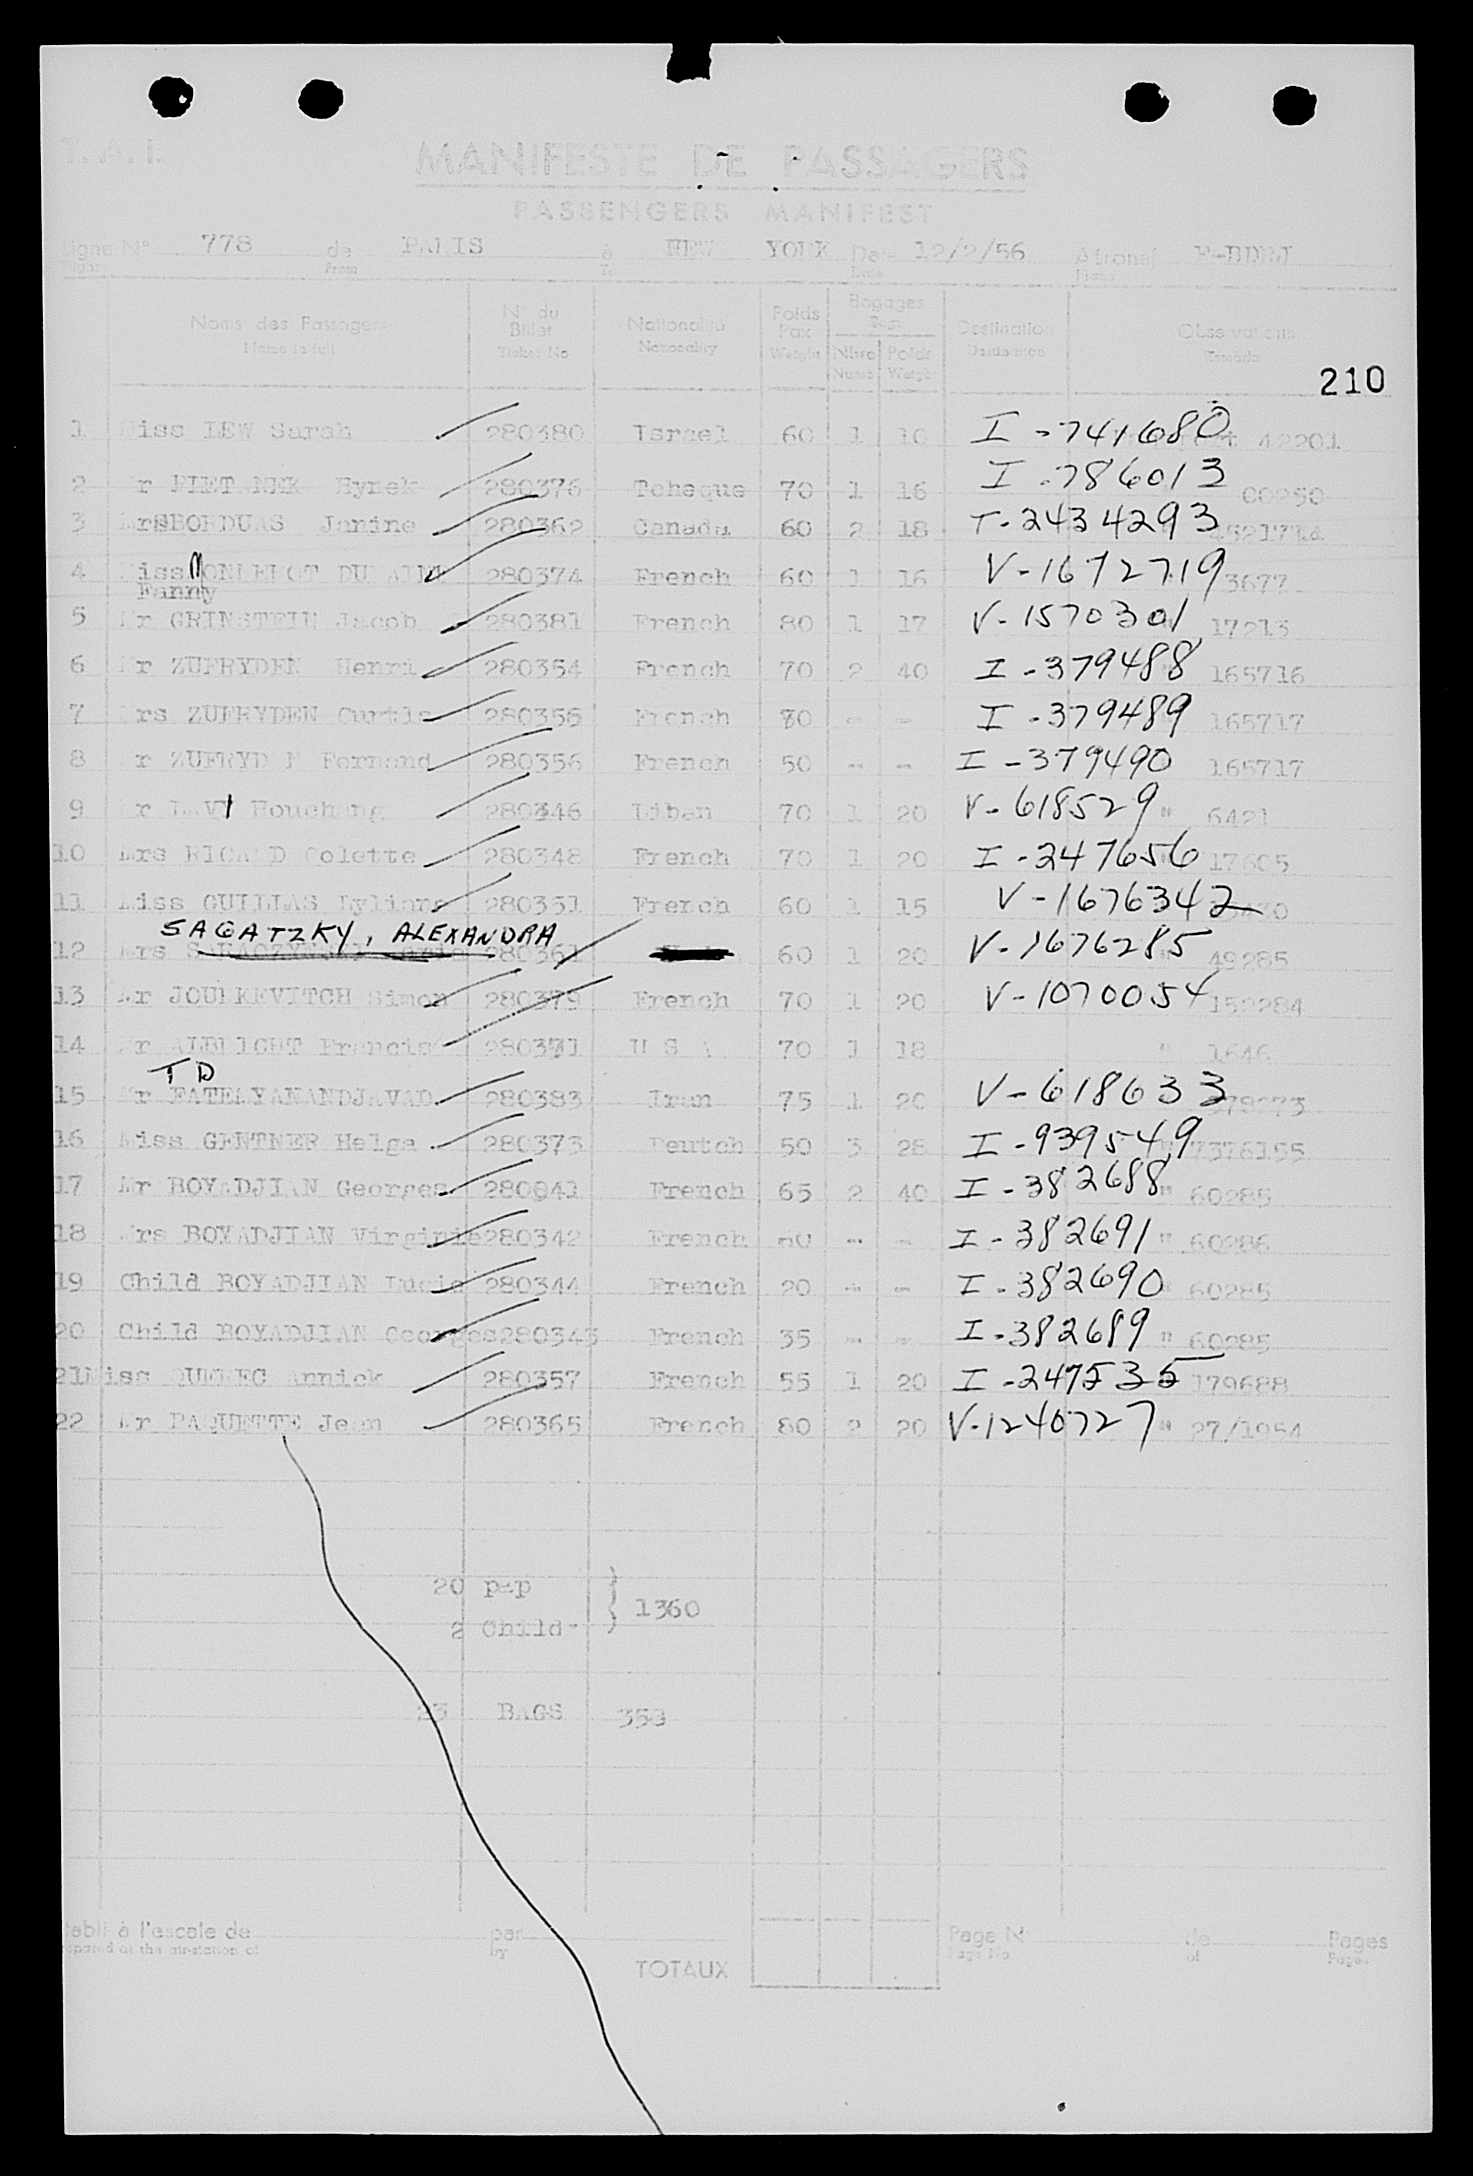 T. A. I.
MANIFESTE DE PASSAGERS
PASSENGERS MANIFEST
Ligne N° 778 de PARIS à NEW YORK Date 12/2/56
From
Noms des Passagers N° du Billet Nationalité Poids Pax Bagages Destination Observations
Name in full Ticket No Nationality Weight Nbre Poids Destination Remarks
210
1 Miss LEW Sarah 280380 Israel 60 1 10 I-741680 42201
2 Mr Hynek 280376 Tcheque 70 1 16 I-786013 00250
3 Mrs BORDUAS Janine 280362 Canada 60 2 18 T-2434293
4 Miss 280374 French 60 1 16 V-1672719 3677
Fanny
5 Mr GRINSTEIN Jacob 280381 French 80 1 17 V-1570301 17213
6 Mr ZUFRYDEN Henri 280354 French 70 2 40 I-379488 165716
7 Mrs ZUFRYDEN 280355 French 80 - - I-379489 165717
8 Mr ZUFRYDEN Fernand 280356 French 50 -- -- I-379490 165717
9 Mr Houchang 280346 Liban 70 1 20 V-618529 " 6421
10 Mrs RICARD Colette 280348 French 70 1 20 I-247656 17605
11 Miss GUILLAS Lyliane 280351 French 60 1 15 V-1676342
SAGATZKY, ALEXANDRA
12 Mrs 280361 60 1 20 V-1676285 49285
13 Mr JOURKEVITCH Simon 280379 French 70 1 20 V-1070054 159284
14 Mr ALBRIGHT Francis 280371 U S A 70 1 18 " 1646
T D
15 Mr 280383 Iran 75 1 20 V-618633
16 Miss GENTNER Helga 280373 Deutch 50 3 28 I-939549 7376155
17 Mr BOYADJIAN Georges 280341 French 65 2 40 I-382688 " 60285
18 Mrs BOYADJIAN Virginie 280342 French -- - I-382691 " 60286
19 Child BOYADJIAN Lucie 280344 French 20 -- -- I-382690 " 60285
20 Child BOYADJIAN Georges 280343 French 35 -- -- I-382689 " 60285
21 Miss QUELEC Annick 280357 French 55 1 20 I-247535 179688
22 Mr PAQUETTE Jean 280365 French 80 2 20 V-1240727 " 27/1954
20 pap
2 Child } 1360
23 BAGS 358
Etabli à l'escale de par Page N° de Pages
Prepared at the air-station of by Page No of Pages
TOTAUX